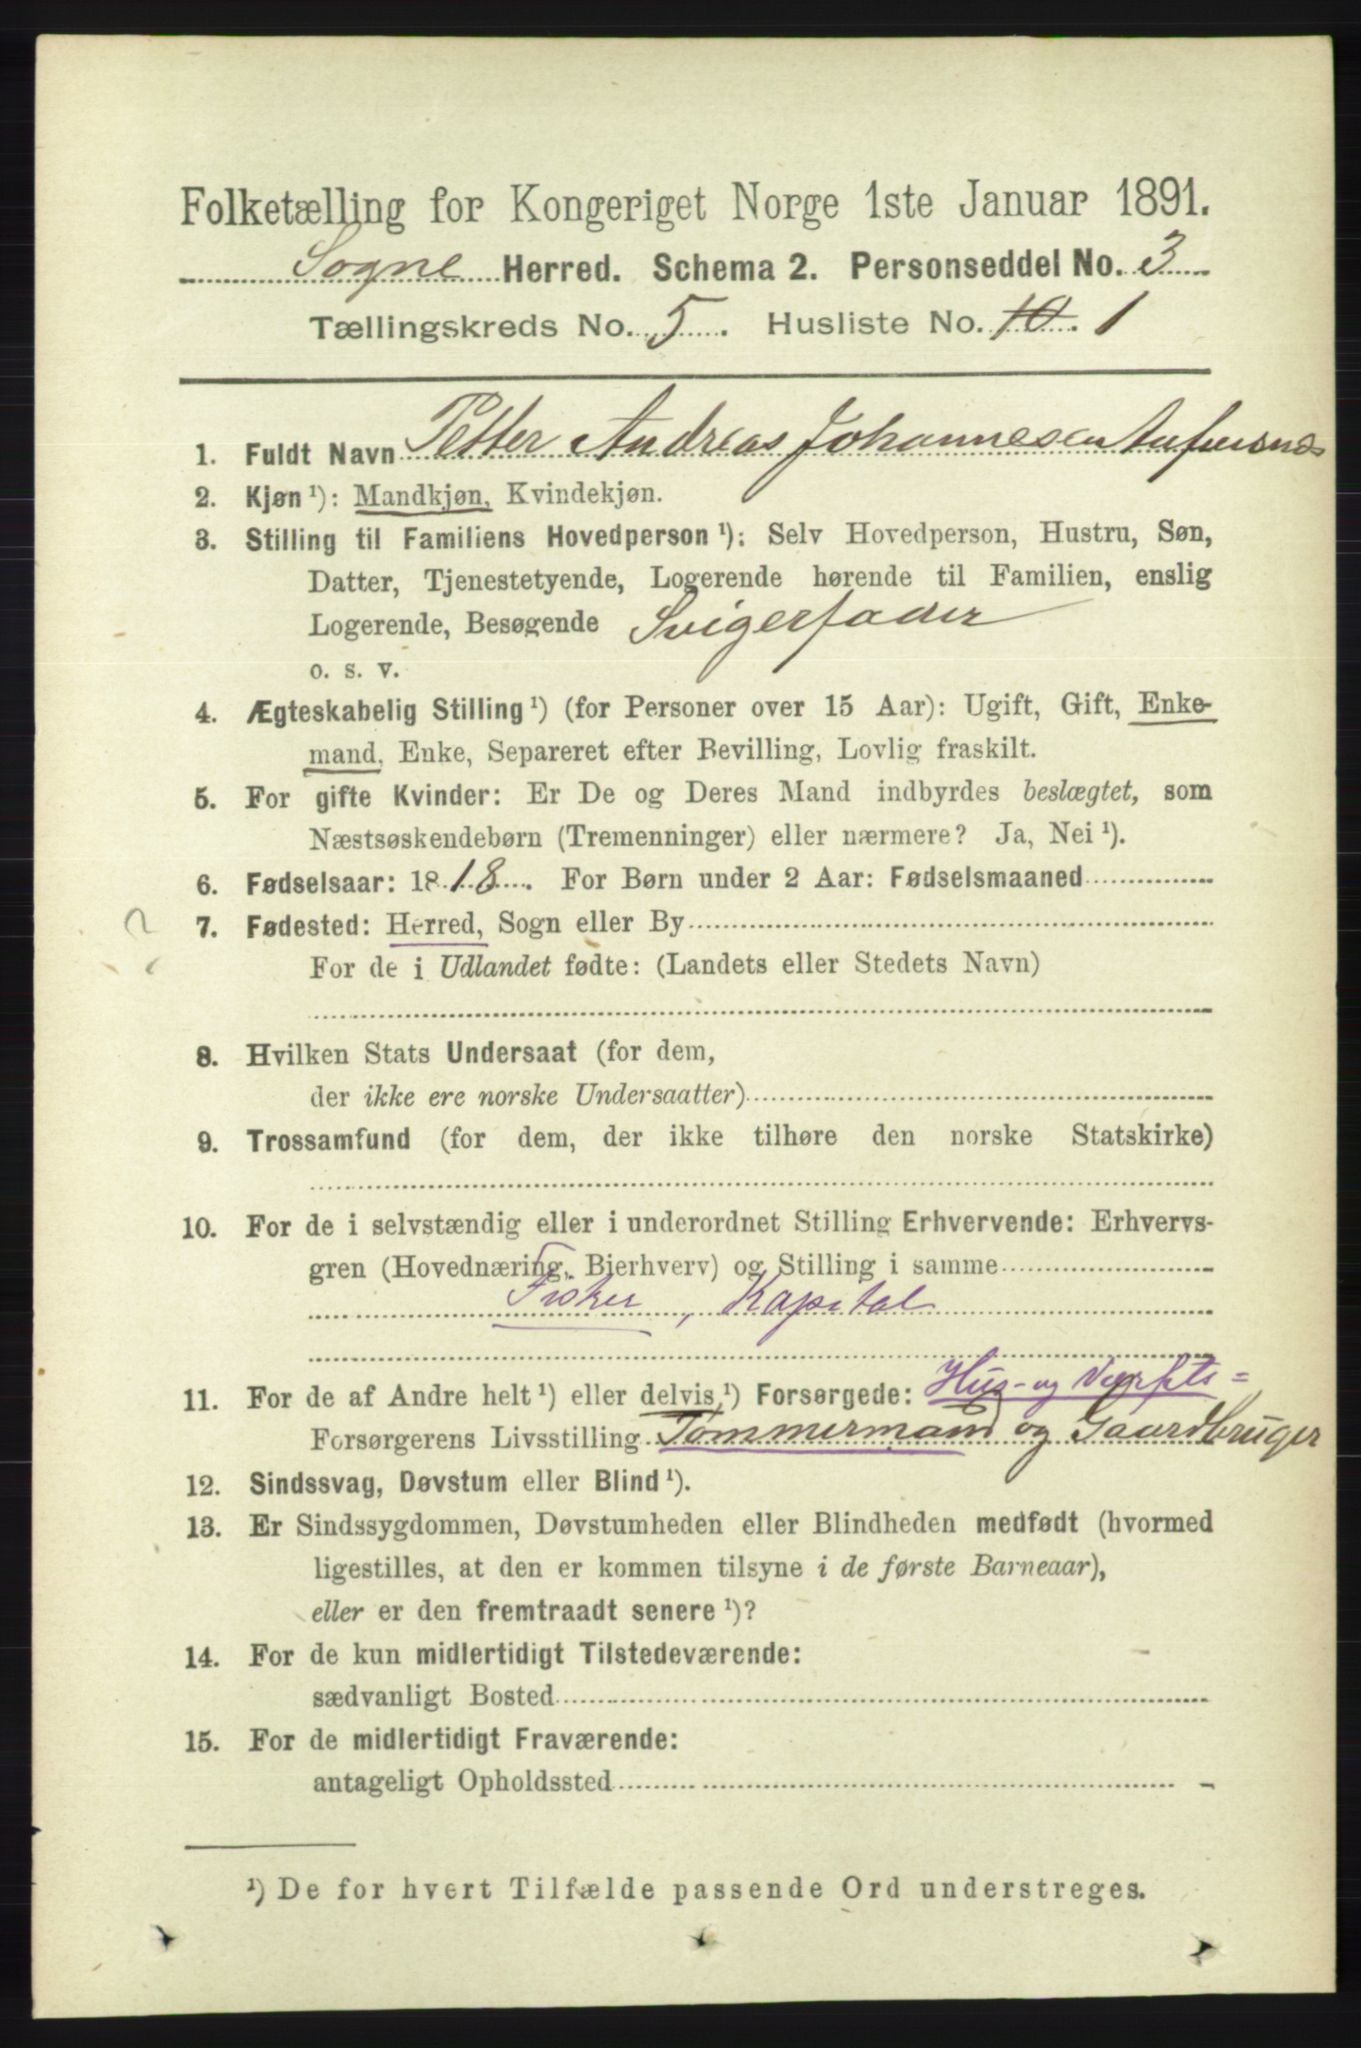 Folketælling for Kongeriget Norge 1ste Januar 1891.
Sogne Herred. Schema 2. Personseddel No. 3
Tællingskreds No. 5. Husliste No. 10. 1
1. Fuldt Navn Petter Andreas Johannesen
2. Kjøn ¹): Mandkjøn, Kvindekjøn.
3. Stilling til Familiens Hovedperson ¹): Selv Hovedperson, Hustru, Søn,
Datter, Tjenestetyende, Logerende hørende til Familien, enslig
Logerende, Besøgende Svigerfader
o. s. v.
4. Ægteskabelig Stilling ¹) (for Personer over 15 Aar): Ugift, Gift, Enke-
mand, Enke, Separeret efter Bevilling, Lovlig fraskilt.
5. For gifte Kvinder: Er De og Deres Mand indbyrdes beslægtet, som
Næstsøskendebørn (Tremenninger) eller nærmere? Ja, Nei ¹).
6. Fødselsaar: 1818. For Børn under 2 Aar: Fødselsmaaned
? 7. Fødested: Herred, Sogn eller By
For de i Udlandet fødte: (Landets eller Stedets Navn)
8. Hvilken Stats Undersaat (for dem,
der ikke ere norske Undersaatter)
9. Trossamfund (for dem, der ikke tilhøre den norske Statskirke)
10. For de i selvstændig eller i underordnet Stilling Erhvervende: Erhvervs-
gren (Hovednæring, Bierhverv) og Stilling i samme
Fisker, Kapital
Hus- og Værfts=
11. For de af Andre helt ¹) eller delvis ¹) Forsørgede:
Forsørgerens Livsstilling Tømmermand og Gaardbruger
12. Sindssvag, Døvstum eller Blind ¹).
13. Er Sindssygdommen, Døvstumheden eller Blindheden medfødt (hvormed
ligestilles, at den er kommen tilsyne i de første Barneaar),
eller er den fremtraadt senere ¹)?
14. For de kun midlertidigt Tilstedeværende:
sædvanligt Bosted
15. For de midlertidigt Fraværende:
antageligt Opholdssted
¹) De for hvert Tilfælde passende Ord understreges.